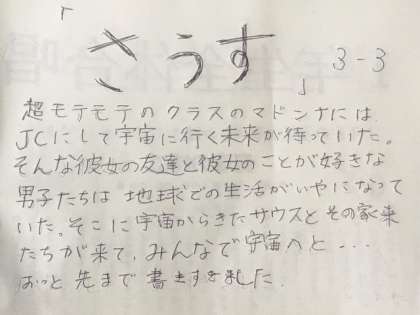 「さうす」 3-3
超モテモテのクラスのマドンナには
JCにして宇宙に行く未来が待っていた。
そんな彼女の友達と彼女のことが好きな
男子たちは 地球での生活がいやになって
いた。そこに宇宙からきたサウスとその家来
たちが来て、みんなで宇宙へと・・・
おっと先まで書きすぎました。